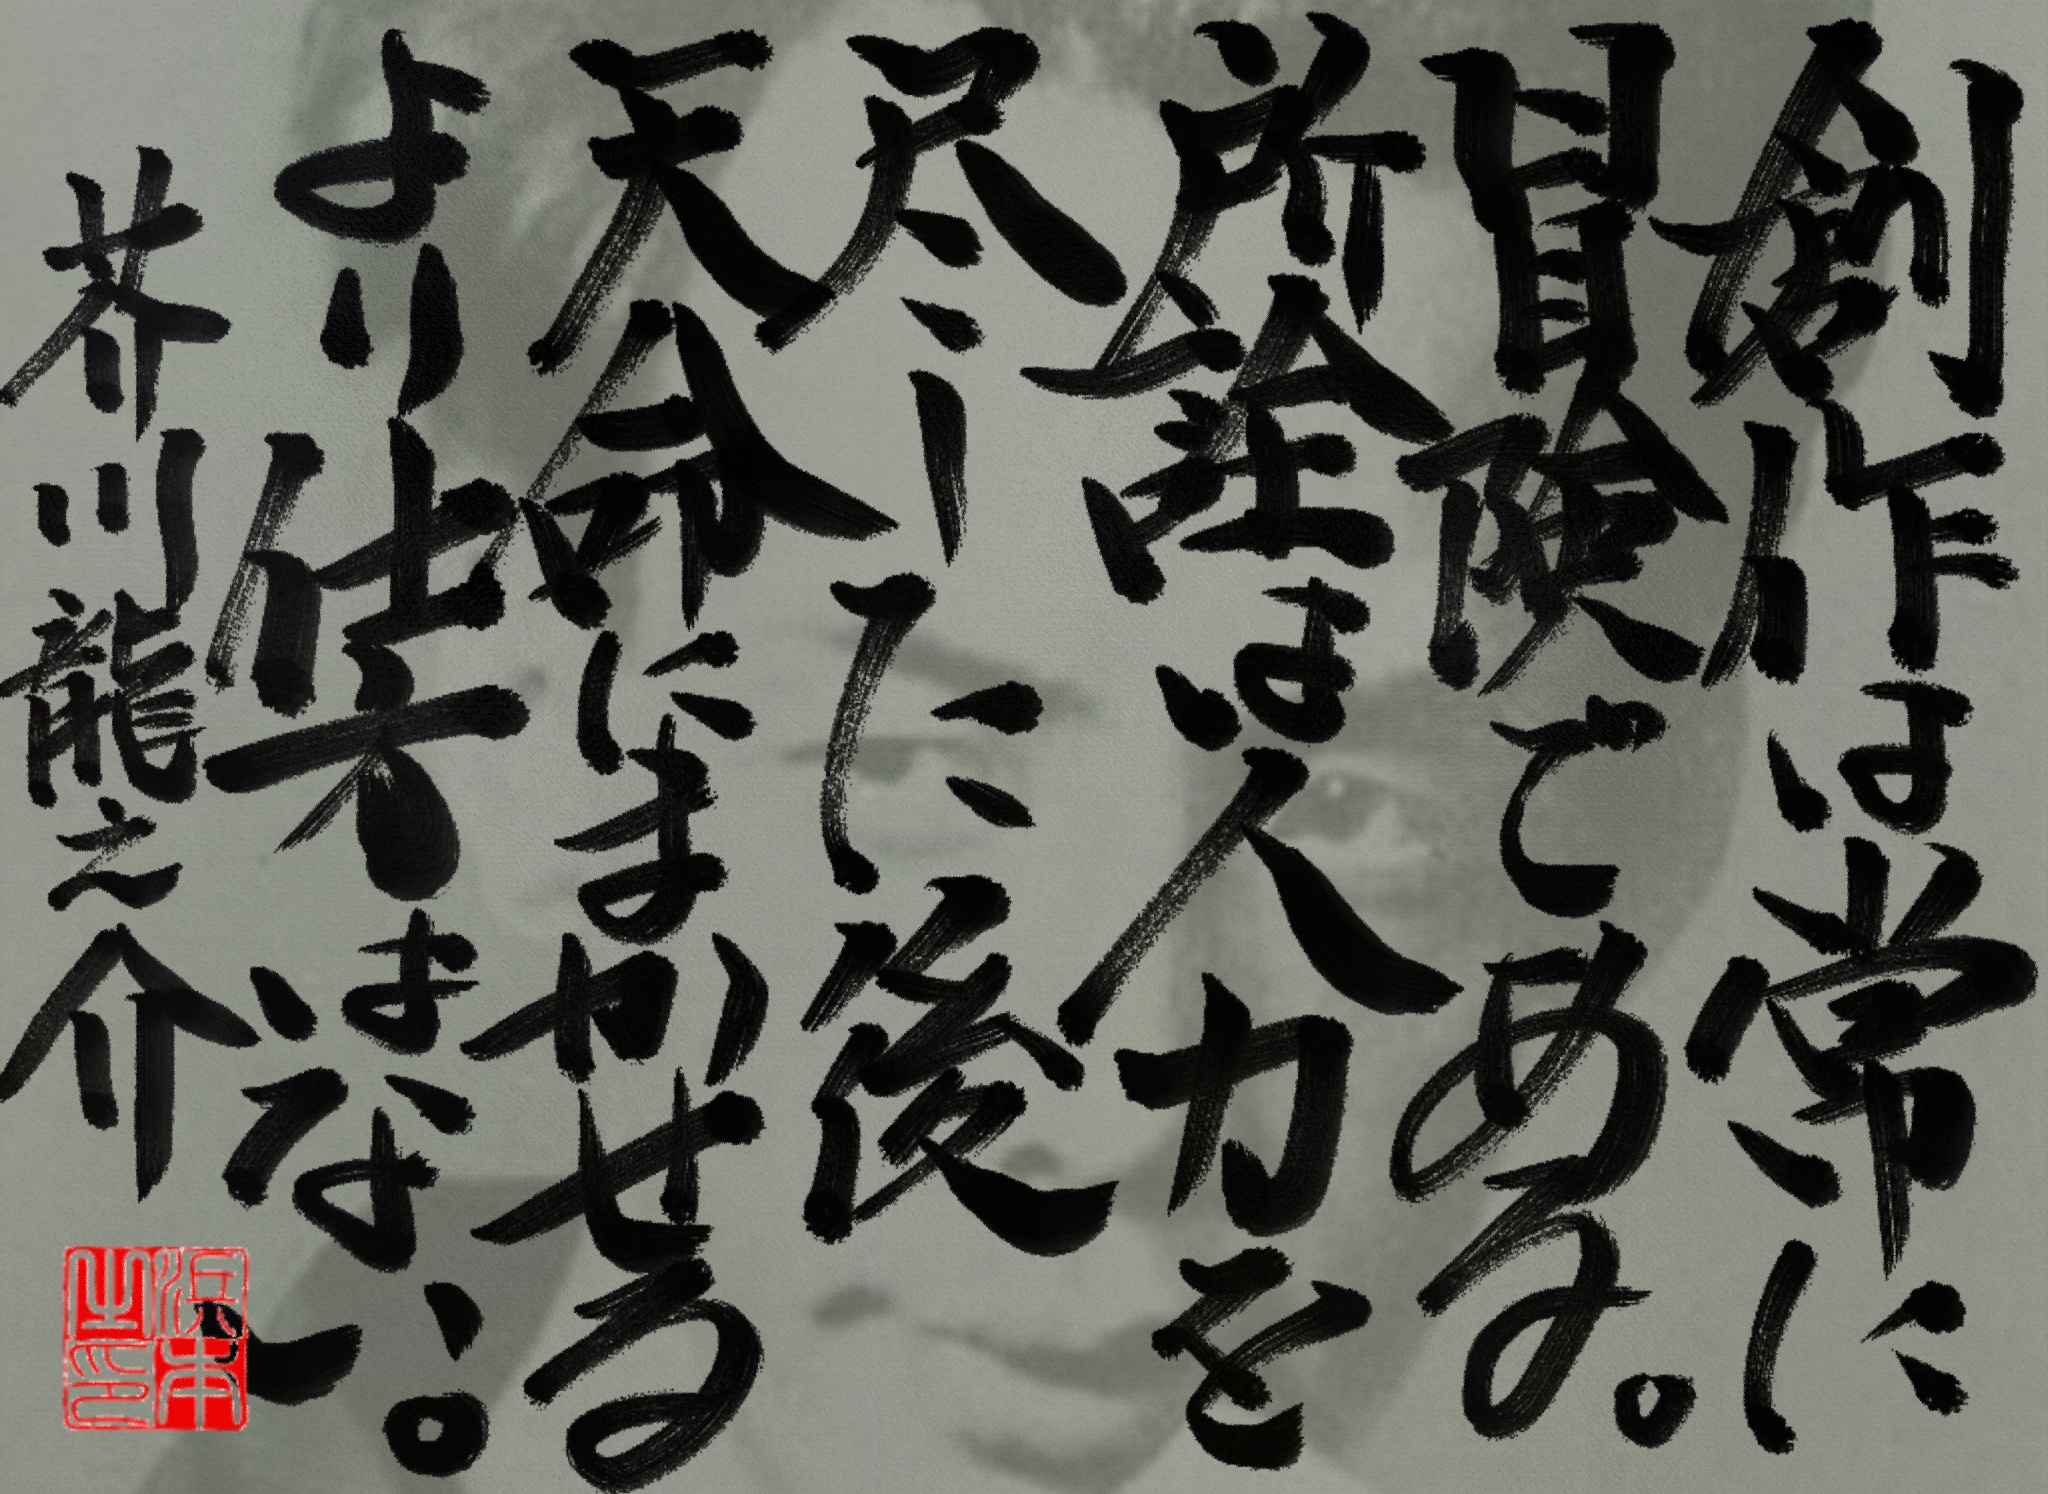 創作は常に
冒険である。
所詮は人力を
尽した後
天命にまかせる
より仕方はない。
芥川龍之介
浜本
之印